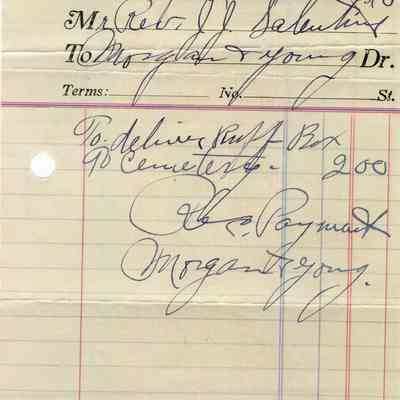 Mr Rev. J. J. Salentine
To Morgan & Young Dr.
Terms: No. St.
To deliver Ruff Box
To Cemetery. 2 00
Rec. Payment
Morgan & Young.